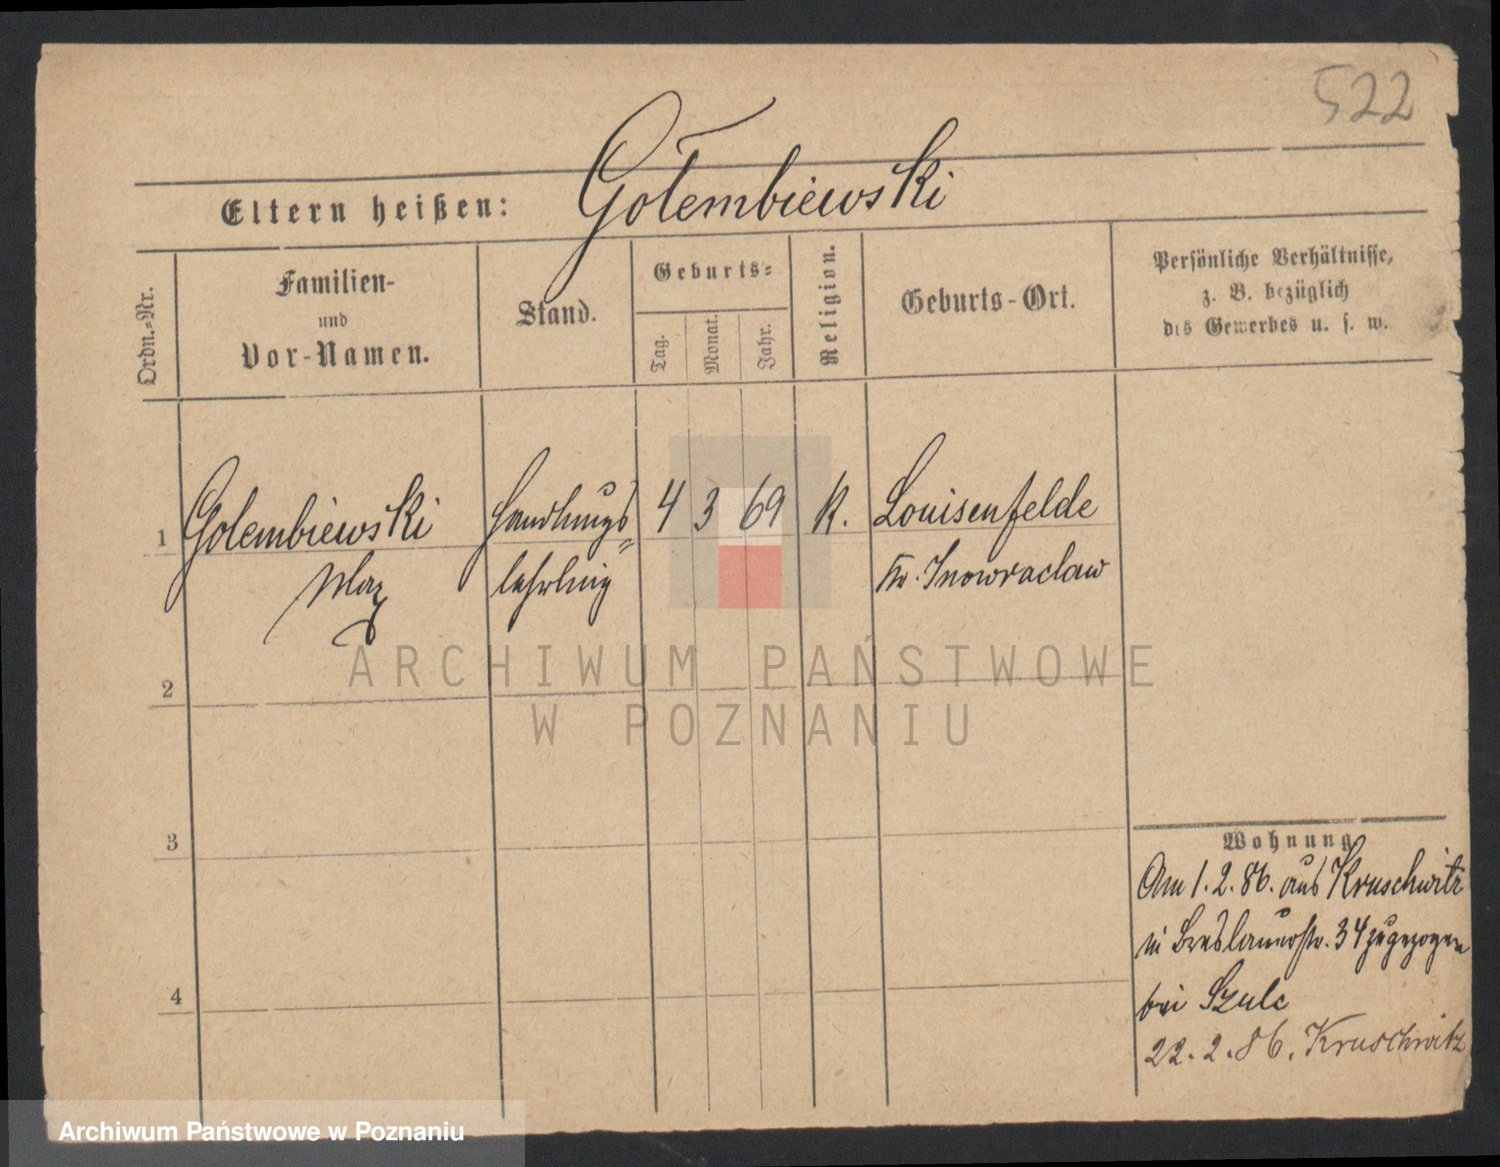 522
Eltern heißen: Gołembiewski
Ordn.-Nr.
Familien-
und
Vor-Namen.
Stand.
Geburts-
Tag.
Monat.
Jahr.
Religion.
Geburts-Ort.
Persönliche Verhältnisse,
z. B. bezüglich
des Gewerbes u. s. w.
1 Golembiewski Handlungs- 4 3 69 K. Louisenfelde
Max lehrling Kr. Inowraclaw
ARCHIWUM PAŃSTWOWE
W POZNANIU
2
3
4
Wohnung
Am 1. 2. 86. aus Kruschwitz
in Breslauerstr. 34 zugezogen
bei Szulc
22. 2. 86. Kruschwitz
Archiwum Państwowe w Poznaniu